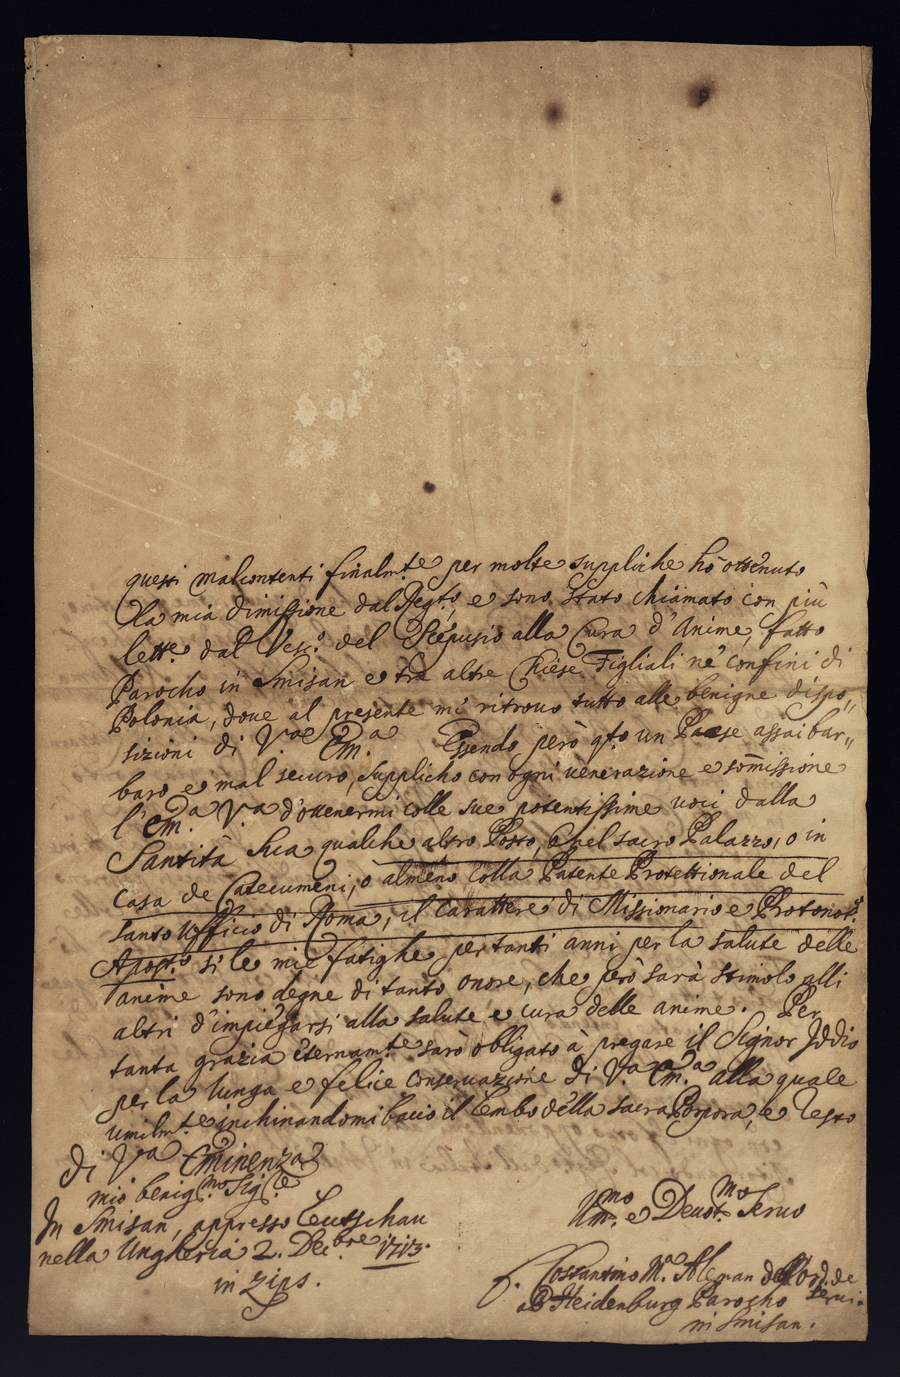 questi malcontenti finalm.te per molte suppliche hò ottenuto
la mia dimissione dal Regt.o, e sono stato chiamato con più
lett.e dal Vesc.o del Scepusio alla Cura d'Anime, fatto
Parocho in Smisan e trà altre Chiese Figliali ne' confini di
Polonia, doue al presente mi ritrouo tutto alle benigne dispo„
sizioni di V.ae Em.a Essendo però q.to un Paese assai bar„
baro e mal securo, supplicho con ogni uenerazione e somissione
l'Em.a V.a d'ottenermi colle sue potentissime uoci dalla
Santità Sua qualche altro Posto, ò nel sacro Palazzo, o in
Casa de Catecumeni, o almeno colla Patente Protettionale del
santo Ufficio di Roma, il Carattere di Missionario e Protonot.o
Apopt.o si le mie fatighe per tanti anni per la salute delle
anime sono degne di tanto onore, che però sarà stimolo alli
altri d'impiegarsi alla salute e cura delle anime. Per
tanta grazia eternam.te sarò obligato à pregare il Signor Iddio
per la lunga e felice Conseruazione di V.a Em.a alla quale
umilm.te inchinandomi bacio il Lembo della sacra Porpora, e resto
Di V.a Eminenza
mio benig.mo Sig.re
In Smisan, appresso Leutschau
nella Ungheria 2. Dec.bre 1713.
in Zips.
Um.mo e Deuot.mo Seruo
f. Costantino M.a Aleman dell'Ord. de
Serui.
ab Heidenburg Parocho
in Smisan.